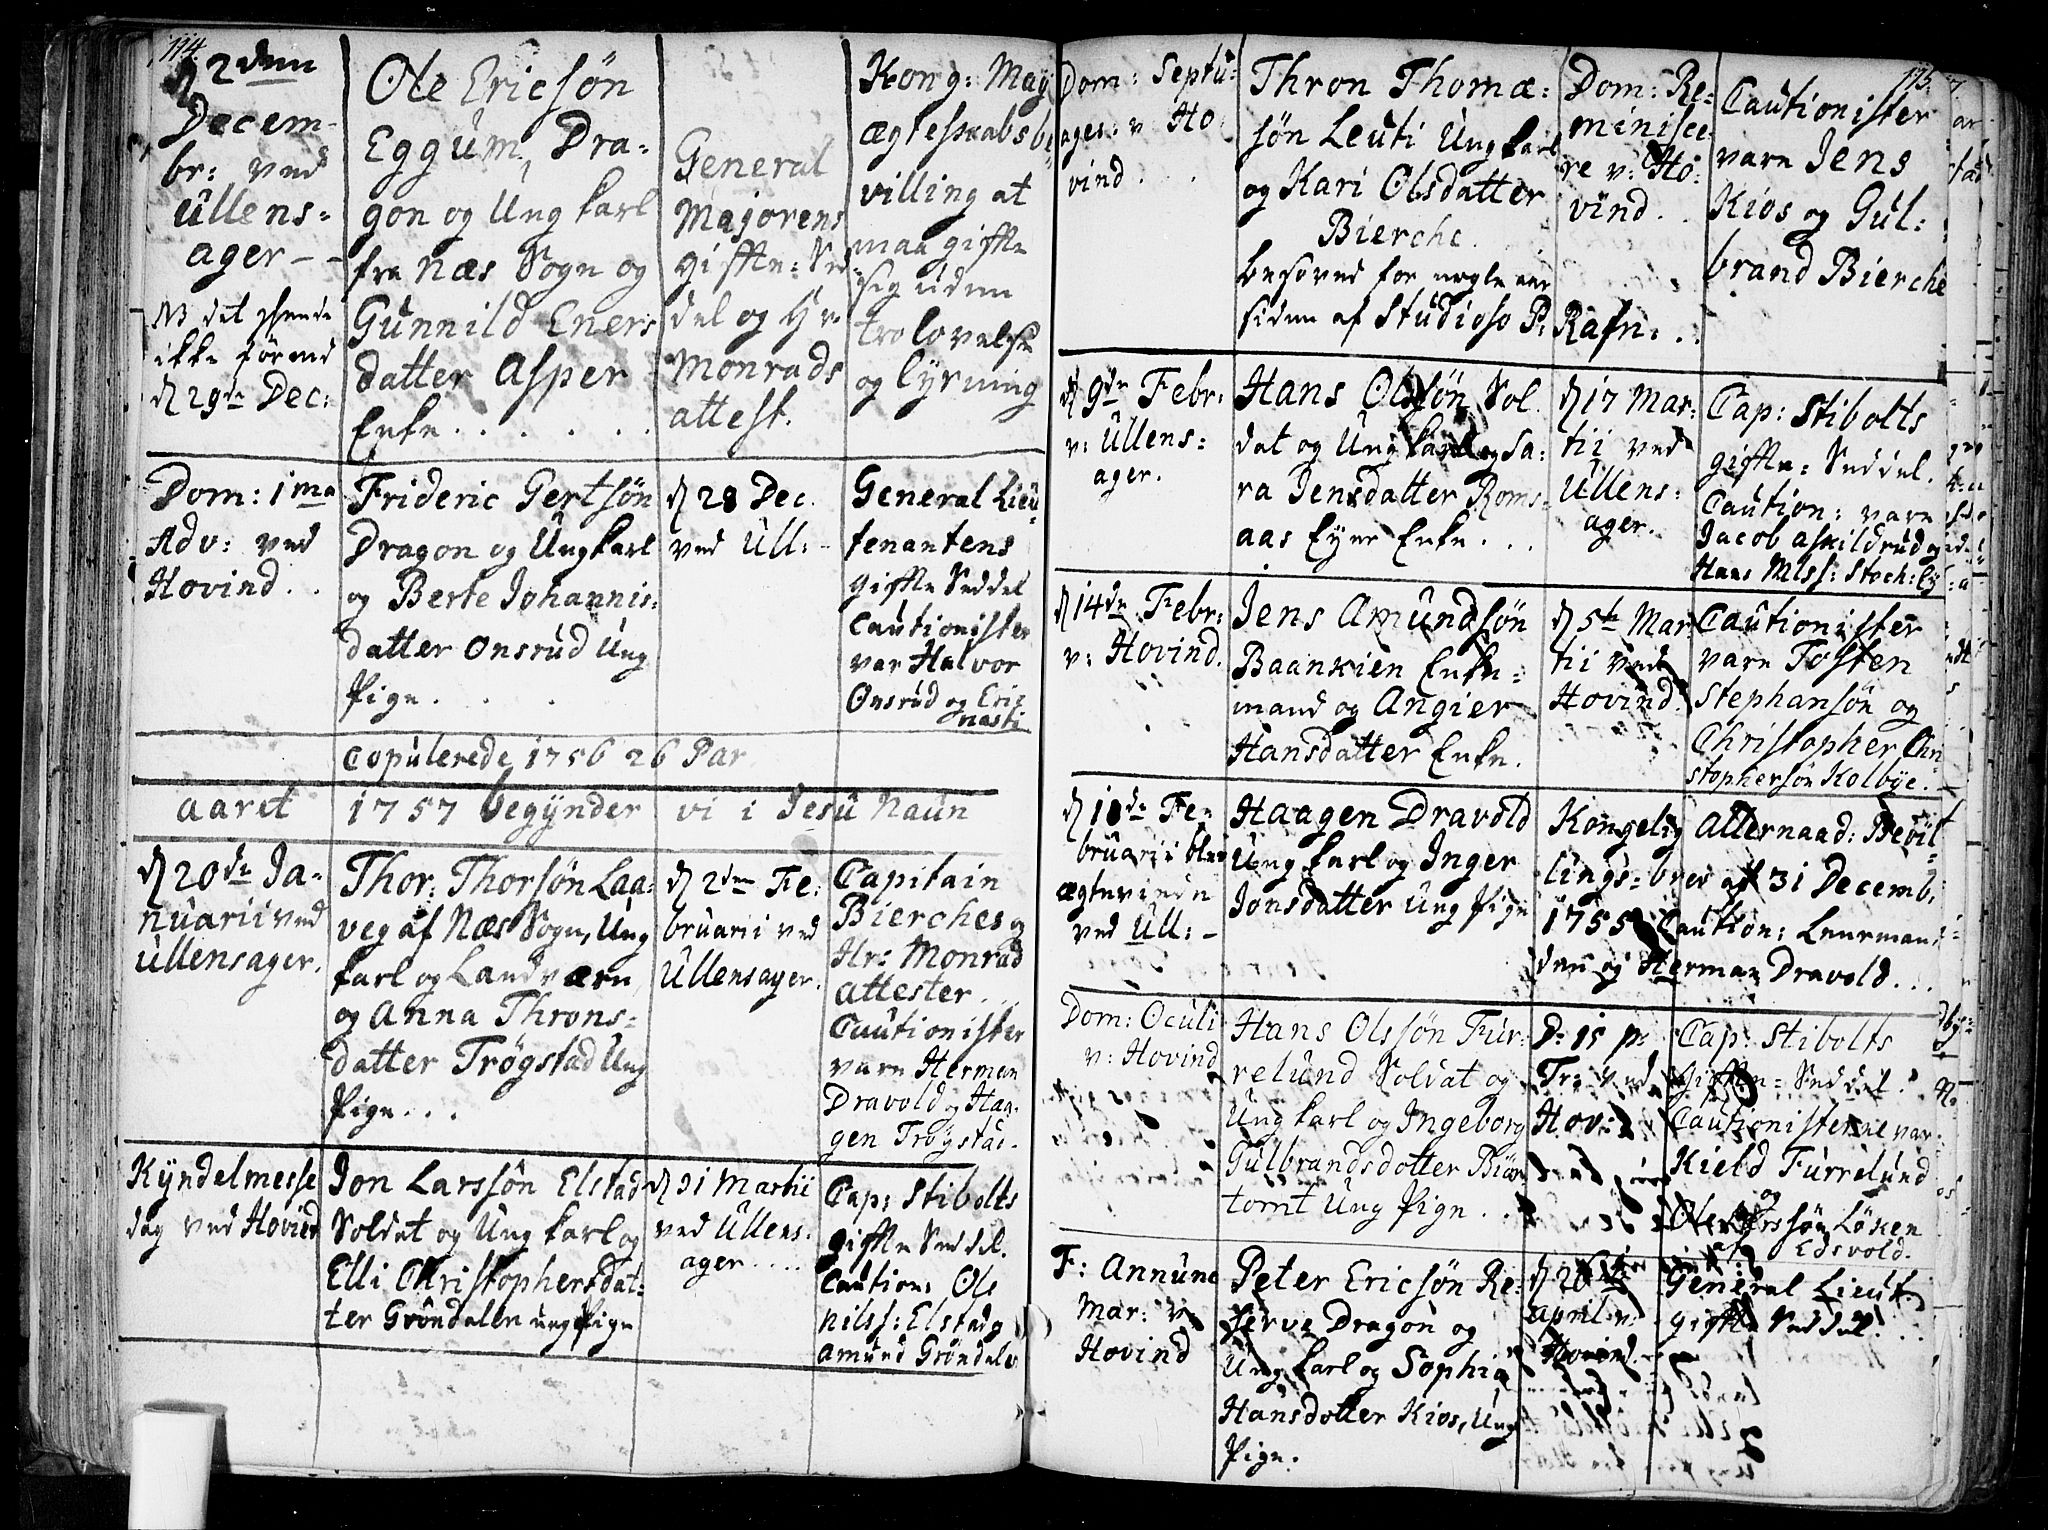 114.
d 2den
Decem-
br: ved
Ullens-
ager - -
NB det skeede
ikke førend
d 29de Dec:
Ole Ericsøn
Eggum, Dra-
gon og Ung karl
fra Næs Sogn og
Gunnild Eners
datter Asper
Enke . . . . . .
General
Majorens
giffte: Sed-
del og Hr
Monrads
attest.
Kong: May
ægtesskabs be-
villing at
maa giffte
sig uden
trolovelse
og lysning
Dom: 1ma
Adv: ved
Hovind . .
Frideric Gertsøn
Dragon og Ungkarl
og Berte Johannis-
datter Onsrud Ung
Pige . . .
d 28 Dec.
ved Ull: -
General Lieu-
tenantens
giffte Seddel
Cautionister
var Halvor
Onsrud og Eric
nasti
Copulerede 1756 26 Par
aaret 1757 begynder vi i Jesu Naun
d 20de Ja-
nuarii ved
Ullensager.
Thor: Thorsøn Laa-
veg af Næs Sogn, Ung
karl og Landværn
og Anna Throns-
datter Trøgstad Ung
Pige . . .
d 2den Fe-
bruarii ved
Ullensager.
Capitain
Bierches og
Hr: Monrad
attester . .
Cautionister
vare Herman
Dravold og Haa-
gen Trøgstad.
Kyndelmesse
dag ved Hovind
Jon Larssøn Elstad
Soldat og Ung karl og
Elli Christophersdat-
ter Grøndalen ung Pige
d 31 Martii
ved Ullens-
ager . . . .
Cap: Stibolts
giffte Seddel.
Caution: Ole
Nilss: Elstad og
Amund Grøndalen
115.
Dom: Septu-
ages: v Ho-
vind . . .
Thron Thomæ-
søn Leuti Ung karl
og Kari Olsdatter
Bierche.
besoved for nogle aar
siden af Studioso P: Rafn. . .
Dom: Re-
minisce-
re v: Ho-
vind . .
Cautionister
vare Jens
Kios og Gul-
brand Bierche
d 9de Febr:
v: Ullens-
ager.
Hans Olssøn Sol
dat og Ung karl og Sa-
ra Jensdatter Roms-
aas Eyer Enke . . .
d 17 Mar-
tii ved
Ullens-
ager.
Cap: Stibolts
giffte: Seddel.
Caution: vare
Jacob Askildrud og
Hans Nilss: Stoch:
d 14de Febr:
v: Hovind.
Jens Amundsøn
Baankien Enke-
mand og Angier
Hansdatter Enke.
d 5te Mar
tii ved
Hovind.
Cautionister
vare Tosten
Stephansøn og
Christopher Chri-
stophersøn Kolbye.
d 18de Fe-
bruarii blev
ægteviede
ved Ull: -
Haagen Dravold
Ung karl og Inger
Jonsdatter Ung Pige
Kongelig Allernaad: Bevil-
lings-brev af 31 Decemb,
1755 Caution: Leurman
den og Herman Dravold . . .
Dom: Oculi
v: Hovind
Hans Olssøn Fur-
relund Soldat og
Ung karl og Ingeborg
Gulbrandsdotter Biør-
tomt Ung Pige . . .
D: 15 p:
Tr: ved
Hov:
Cap: Stibolts
Giffte-Seddel.
Cautionisterne var
Kield Furrelund
og
Ole Larssøn Løken
Edsvold.
F: Annunc
Mar: v
Hovind
Peter Ericsøn Re-
serve Dragon og
Ung karl og Sophia
Hansdotter Kios, Ung
Pige.
d 20de
april v:
Hovind.
General Lieut.
giffte Seddel.